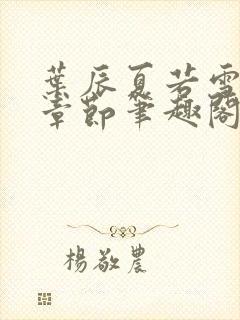 葉辰夏若雪
章節筆趣閣
楊敬農